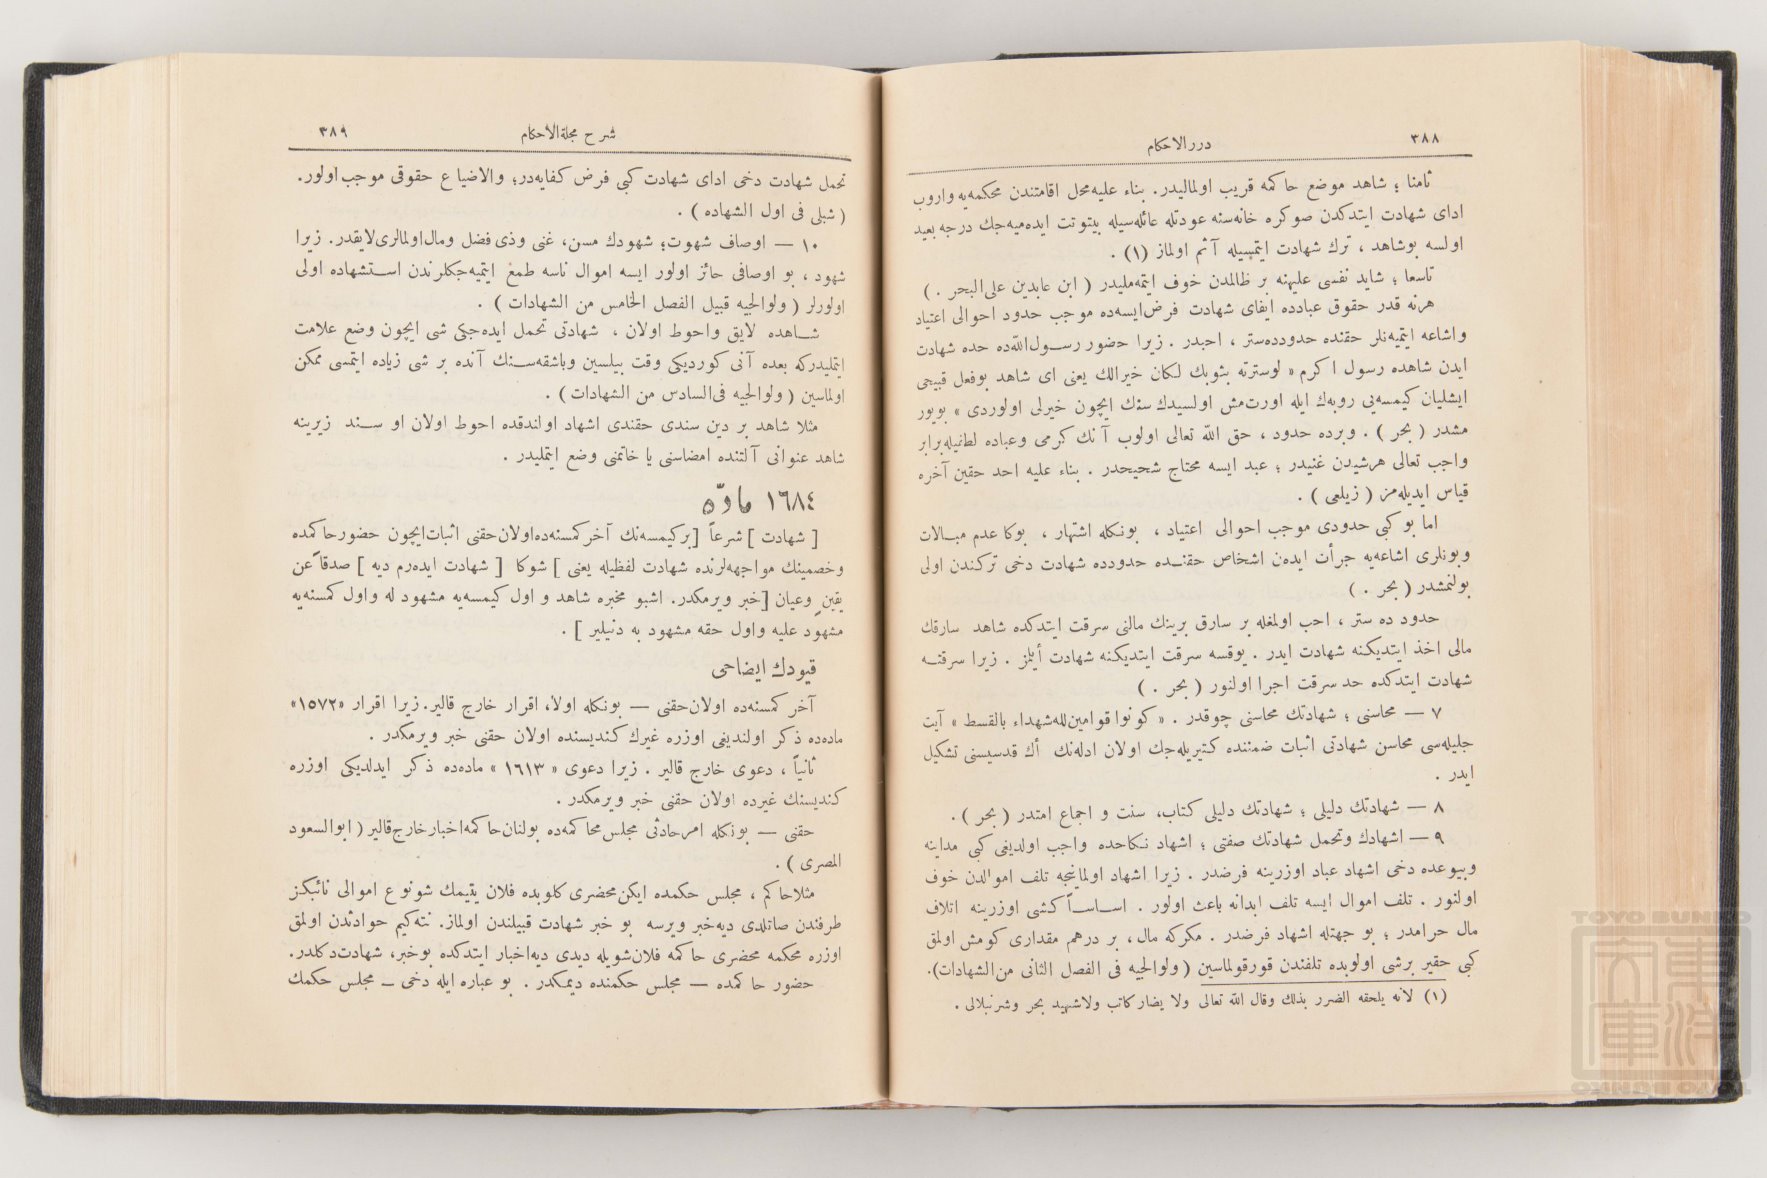 ٣٨٨
درر الاحكام
ثامنا ؛ شاهد موضع حاكمه قريب اولماليدر. بناء عليه محل اقامتندن محكمه‌يه واروب
اداى شهادت ايتدكدن صوكره خانه‌سنه عودتله عائله‌سيله بيتوتت ايده‌ميه‌جك درجه بعيد
اولسه بوشاهد ، ترك شهادت ايتمسيله آثم اولماز (١) .
تاسعا ؛ شايد نفسى عليهنه بر ظالمدن خوف ايتمه‌مليدر ( ابن عابدين على البحر . )
هرنه قدر حقوق عبادده ايفاى شهادت فرض ايسه‌ده موجب حدود احوالى اعتياد
واشاعه ايتميه‌نلر حقنده حدودده ستر ، احبدر . زيرا حضور رسول الله‌ده حده شهادت
ايدن شاهده رسول اكرم « لوسترته بثوبك لكان خيرالك يعنى اى شاهد بوفعل قبيحى
ايشليان كيمسه‌يى روبه‌ك ايله اورتمش اولسيدك سنك ايچون خيرلى اولوردى » بويور
مشدر ( بحر ) . وبرده حدود ، حق الله تعالى اولوب آنك كرمى وعباده لطانيله برابر
واجب تعالى هرشيدن غنيدر ؛ عبد ايسه محتاج شحيحدر . بناء عليه احد حقين آخره
قياس ايديله‌مز ( زيلعى ) .
اما بو كبى حدودى موجب احوالى اعتياد ، بونكله اشتهار ، بوكا عدم مبالات
وبونلرى اشاعه‌يه جرأت ايده‌ن اشخاص حقنده حدودده شهادت دخى تركندن اولى
بولنمشدر ( بحر . )
حدود ده ستر ، احب اولمغله بر سارق برينك مالنى سرقت ايتدكده شاهد سارقك
مالى اخذ ايتديكنه شهادت ايدر . يوقسه سرقت ايتديكنه شهادت أيلمز . زيرا سرقته
شهادت ايتدكده حد سرقت اجرا اولنور ( بحر . )
٧ — محاسنى ؛ شهادتك محاسنى چوقدر . « كونوا قوامين لله شهداء بالقسط » آيت
جليله‌سى محاسن شهادتى اثبات ضمننده كتيريله‌جك اولان ادله‌نك أك قدسيسنى تشكيل
ايدر .
٨ — شهادتك دليلى ؛ شهادتك دليلى كتاب، سنت و اجماع امتدر ( بحر ) .
٩ — اشهادك وتحمل شهادتك صفتى ؛ اشهاد نكاحده واجب اولديغى كبى مداينه
وبيوعده دخى اشهاد عباد اوزرينه فرضدر . زيرا اشهاد اولماينجه تلف اموالدن خوف
اولنور . تلف اموال ايسه تلف ابدانه باعث اولور . اساساً كشى اوزرينه اتلاف
مال حرامدر ؛ بو جهتله اشهاد فرضدر . مكركه مال، بر درهم مقدارى كومش اولمق
كبى حقير برشى اولوبده تلفندن قورقولماسين ( ولوالجيه فى الفصل الثانى من الشهادات).
(١) لأنه يلحقه الضرر بذلك وقال الله تعالى ولا يضار كاتب ولا شهيد بحر وشرنبلالى .
شرح مجلة الأحكام
٣٨٩
تحمل شهادت دخى اداى شهادت كبى فرض كفايه‌در؛ والاضياع حقوقى موجب اولور.
( شبلى فى اول الشهاده ) .
١٠ — اوصاف شهوت؛ شهودك مسن، غنى وذى فضل ومال اولمالرى لايقدر. زيرا
شهود ، بو اوصافى حائز اولور ايسه اموال ناسه طمع ايتميه‌جكلرندن استشهاده اولى
اولورلر ( ولوالجيه قبيل الفصل الخامس من الشهادات ) .
شاهده لايق واحوط اولان ، شهادتى تحمل ايده‌جكى شى ايچون وضع علامت
ايتمليدركه بعده آنى كورديكى وقت بيلسين وباشقه‌سنك آنده بر شى زياده ايتمسى ممكن
اولماسين ( ولوالجيه فى السادس من الشهادات ) .
مثلا شاهد بر دين سندى حقندى اشهاد اولندقده احوط اولان او سند زيرينه
شاهد عنوانى آلتنده امضاسنى يا خاتمنى وضع ايتمليدر .
١٦٨٤ مادّه
[ شهادت ] شرعاً [بركيمسه‌نك آخر كمسنه‌ده اولان حقنى اثبات ايچون حضور حاكمده
وخصمينك مواجهه‌لرنده شهادت لفظيله يعنى ] شوكا [ شهادت ايده‌رم ديه ] صدقاً عن
يقين وعيان [خبر ويرمكدر. اشبو مخبره شاهد و اول كيمسه‌يه مشهود له واول كمسنه‌يه
مشهود عليه واول حقه مشهود به دنيلير ] .
قيودك ايضاحى
آخر كمسنه‌ده اولان حقنى — بونكله اولا، اقرار خارج قالير. زيرا اقرار «١٥٧٢»
ماده‌ده ذكر اولنديغى اوزره غيرك كنديسنده اولان حقنى خبر ويرمكدر .
ثانياً ، دعوى خارج قالير . زيرا دعوى « ١٦١٣ » ماده‌ده ذكر ايدلديكى اوزره
كنديسنك غيرده اولان حقنى خبر ويرمكدر .
حقنى — بونكله امرحادثى مجلس محاكمه‌ده بولنان حاكمه اخبار خارج قالير ( ابوالسعود
المصرى ) .
مثلا حاكم ، مجلس حكمده ايكن محضرى كلوبده فلان يتيمك شو نوع اموالى نائبكز
طرفندن صاتلدى ديه خبر ويرسه بو خبر شهادت قبيلندن اولماز. نته‌كيم حوادثدن اولمق
اوزره محكمه محضرى حاكمه فلان شويله ديدى ديه اخبار ايتدكده بوخبر، شهادت دكلدر.
حضور حاكمده — مجلس حكمنده ديمكدر . بو عباره ايله دخى — مجلس حكمك
TOYO BUNKO